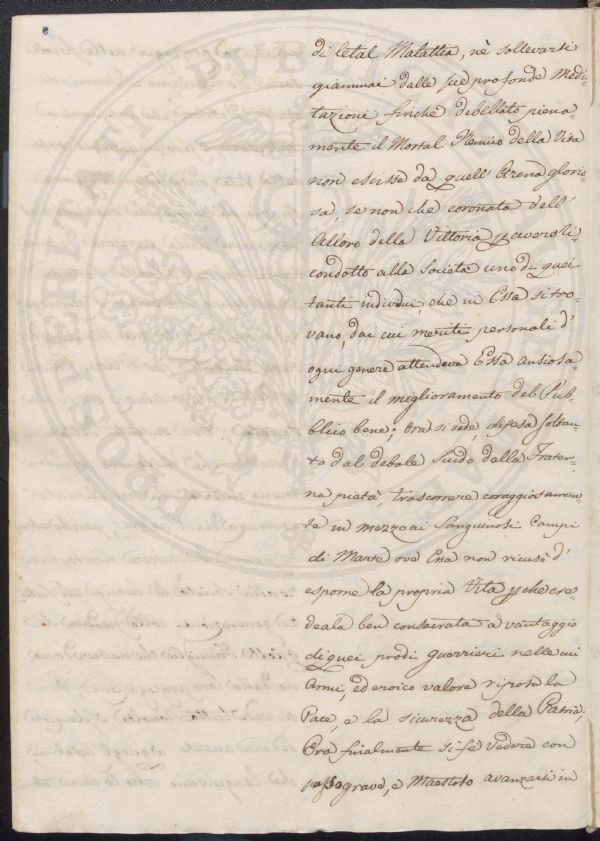 di letal Malattia, nè sollevarsi
giammai dalle sue profonde Medi-
tazioni finchè debellato piena-
mente il Mortal Nemico della Vita
non escisse da quell' Arena glorio-
sa, se non che coronata dell'
Alloro della Vittoria p aver ri-
condotto alla Società uno di quei
tanti individui, che in Essa si tro-
vano, dai cui meriti personali d'
ogni genere attendeva Essa ansiosa-
mente il miglioramento del Pub-
blico bene; Ora si vede, difesa soltan-
to dal debole Scudo della Frater-
na pietà, trascorrere coraggiosamen-
te in mezzo ai Sanguinosi Campi
di Marte ove Essa non ricusò d'
esporre la propria Vita p che cre-
deala ben consacrata a vantaggio
di quei prodi guerrieri nelle cui
Armi, ed eroico valore riposa la
Pace, e la sicurezza della Patria;
Ora finalmente si fè vedere con
passo grave, e Maestoso avanzarsi in
PROSPERITATI PUBLICAE